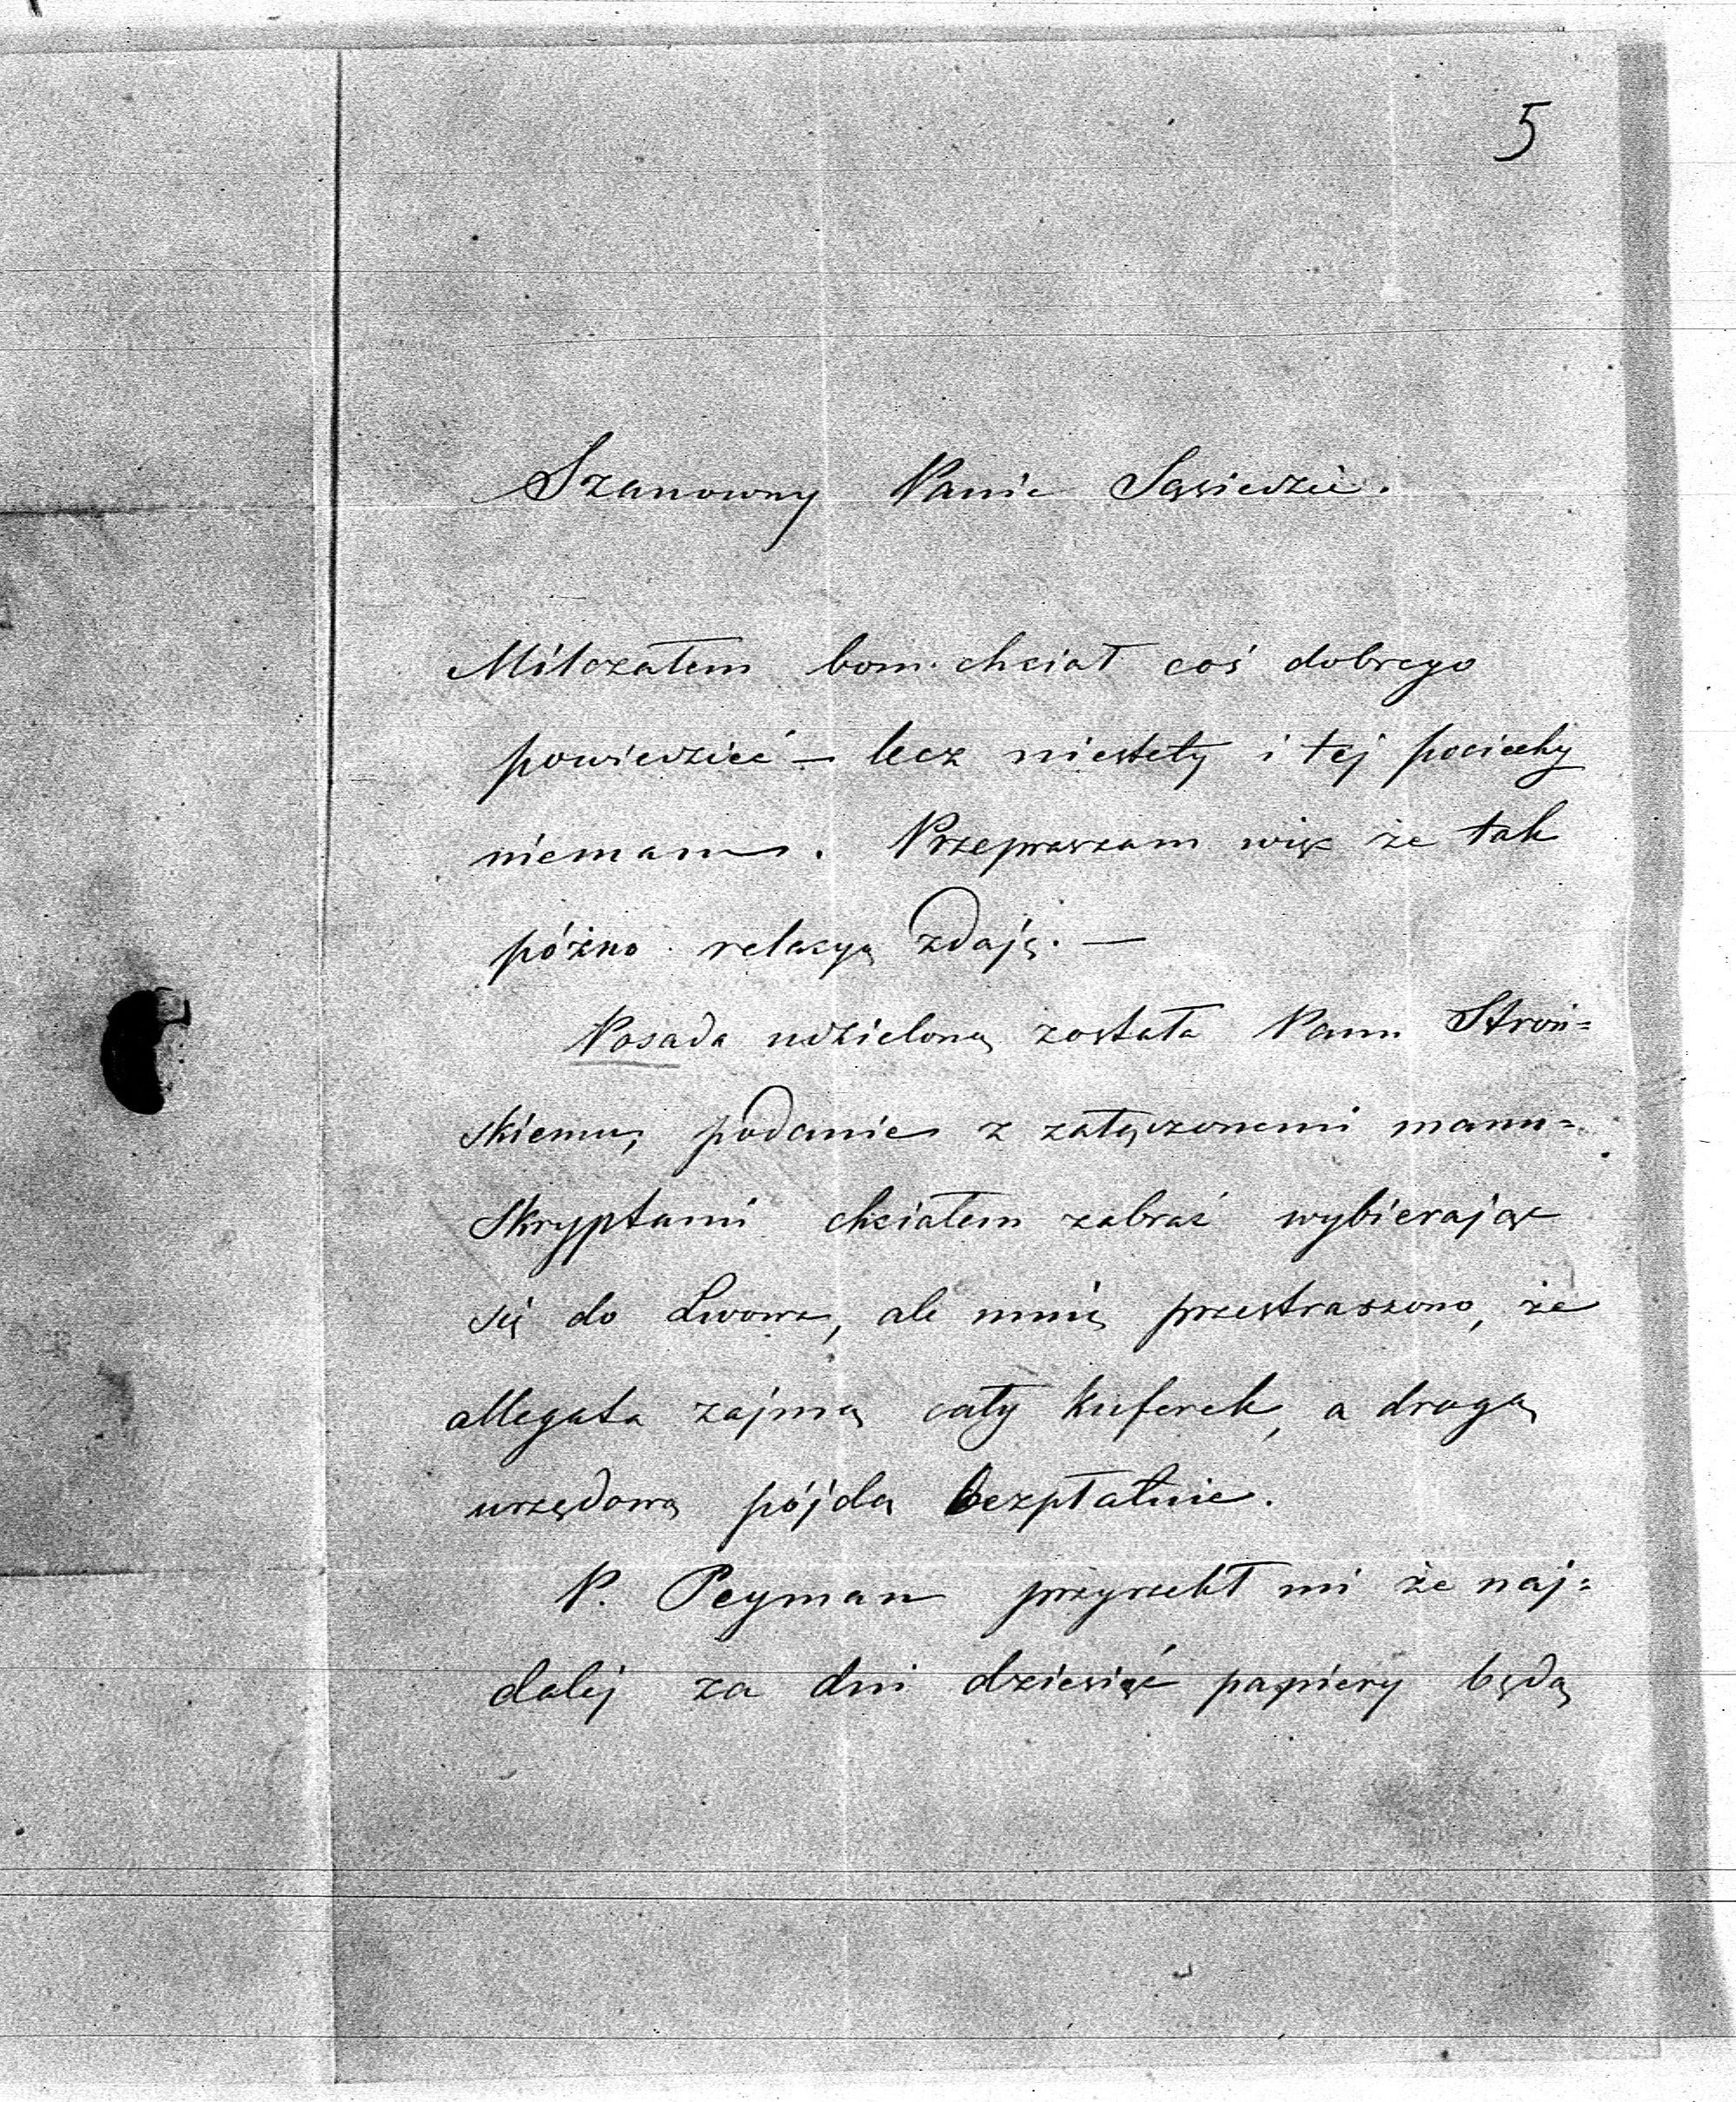 5
Szanowny Panie Sąsiedzie.
Milczałem bom chciał coś dobrego
powiedzieć — lecz niestety i tej pociechy
niemam. Przepraszam więc że tak
późno relacyą zdaję. —
Posada udzieloną została Panu Stroń=
skiemu, podanie z załączonemi manu=
skryptami chciałem zabrać wybierając
się do Lwowa, ale mnię przestraszono, że
allegata zajmą cały kuferek, a drogą
urzędową pójdą bezpłatnie.
P. Peyman przyrzekł mi że naj=
dalej za dni dziesięć papiery będą